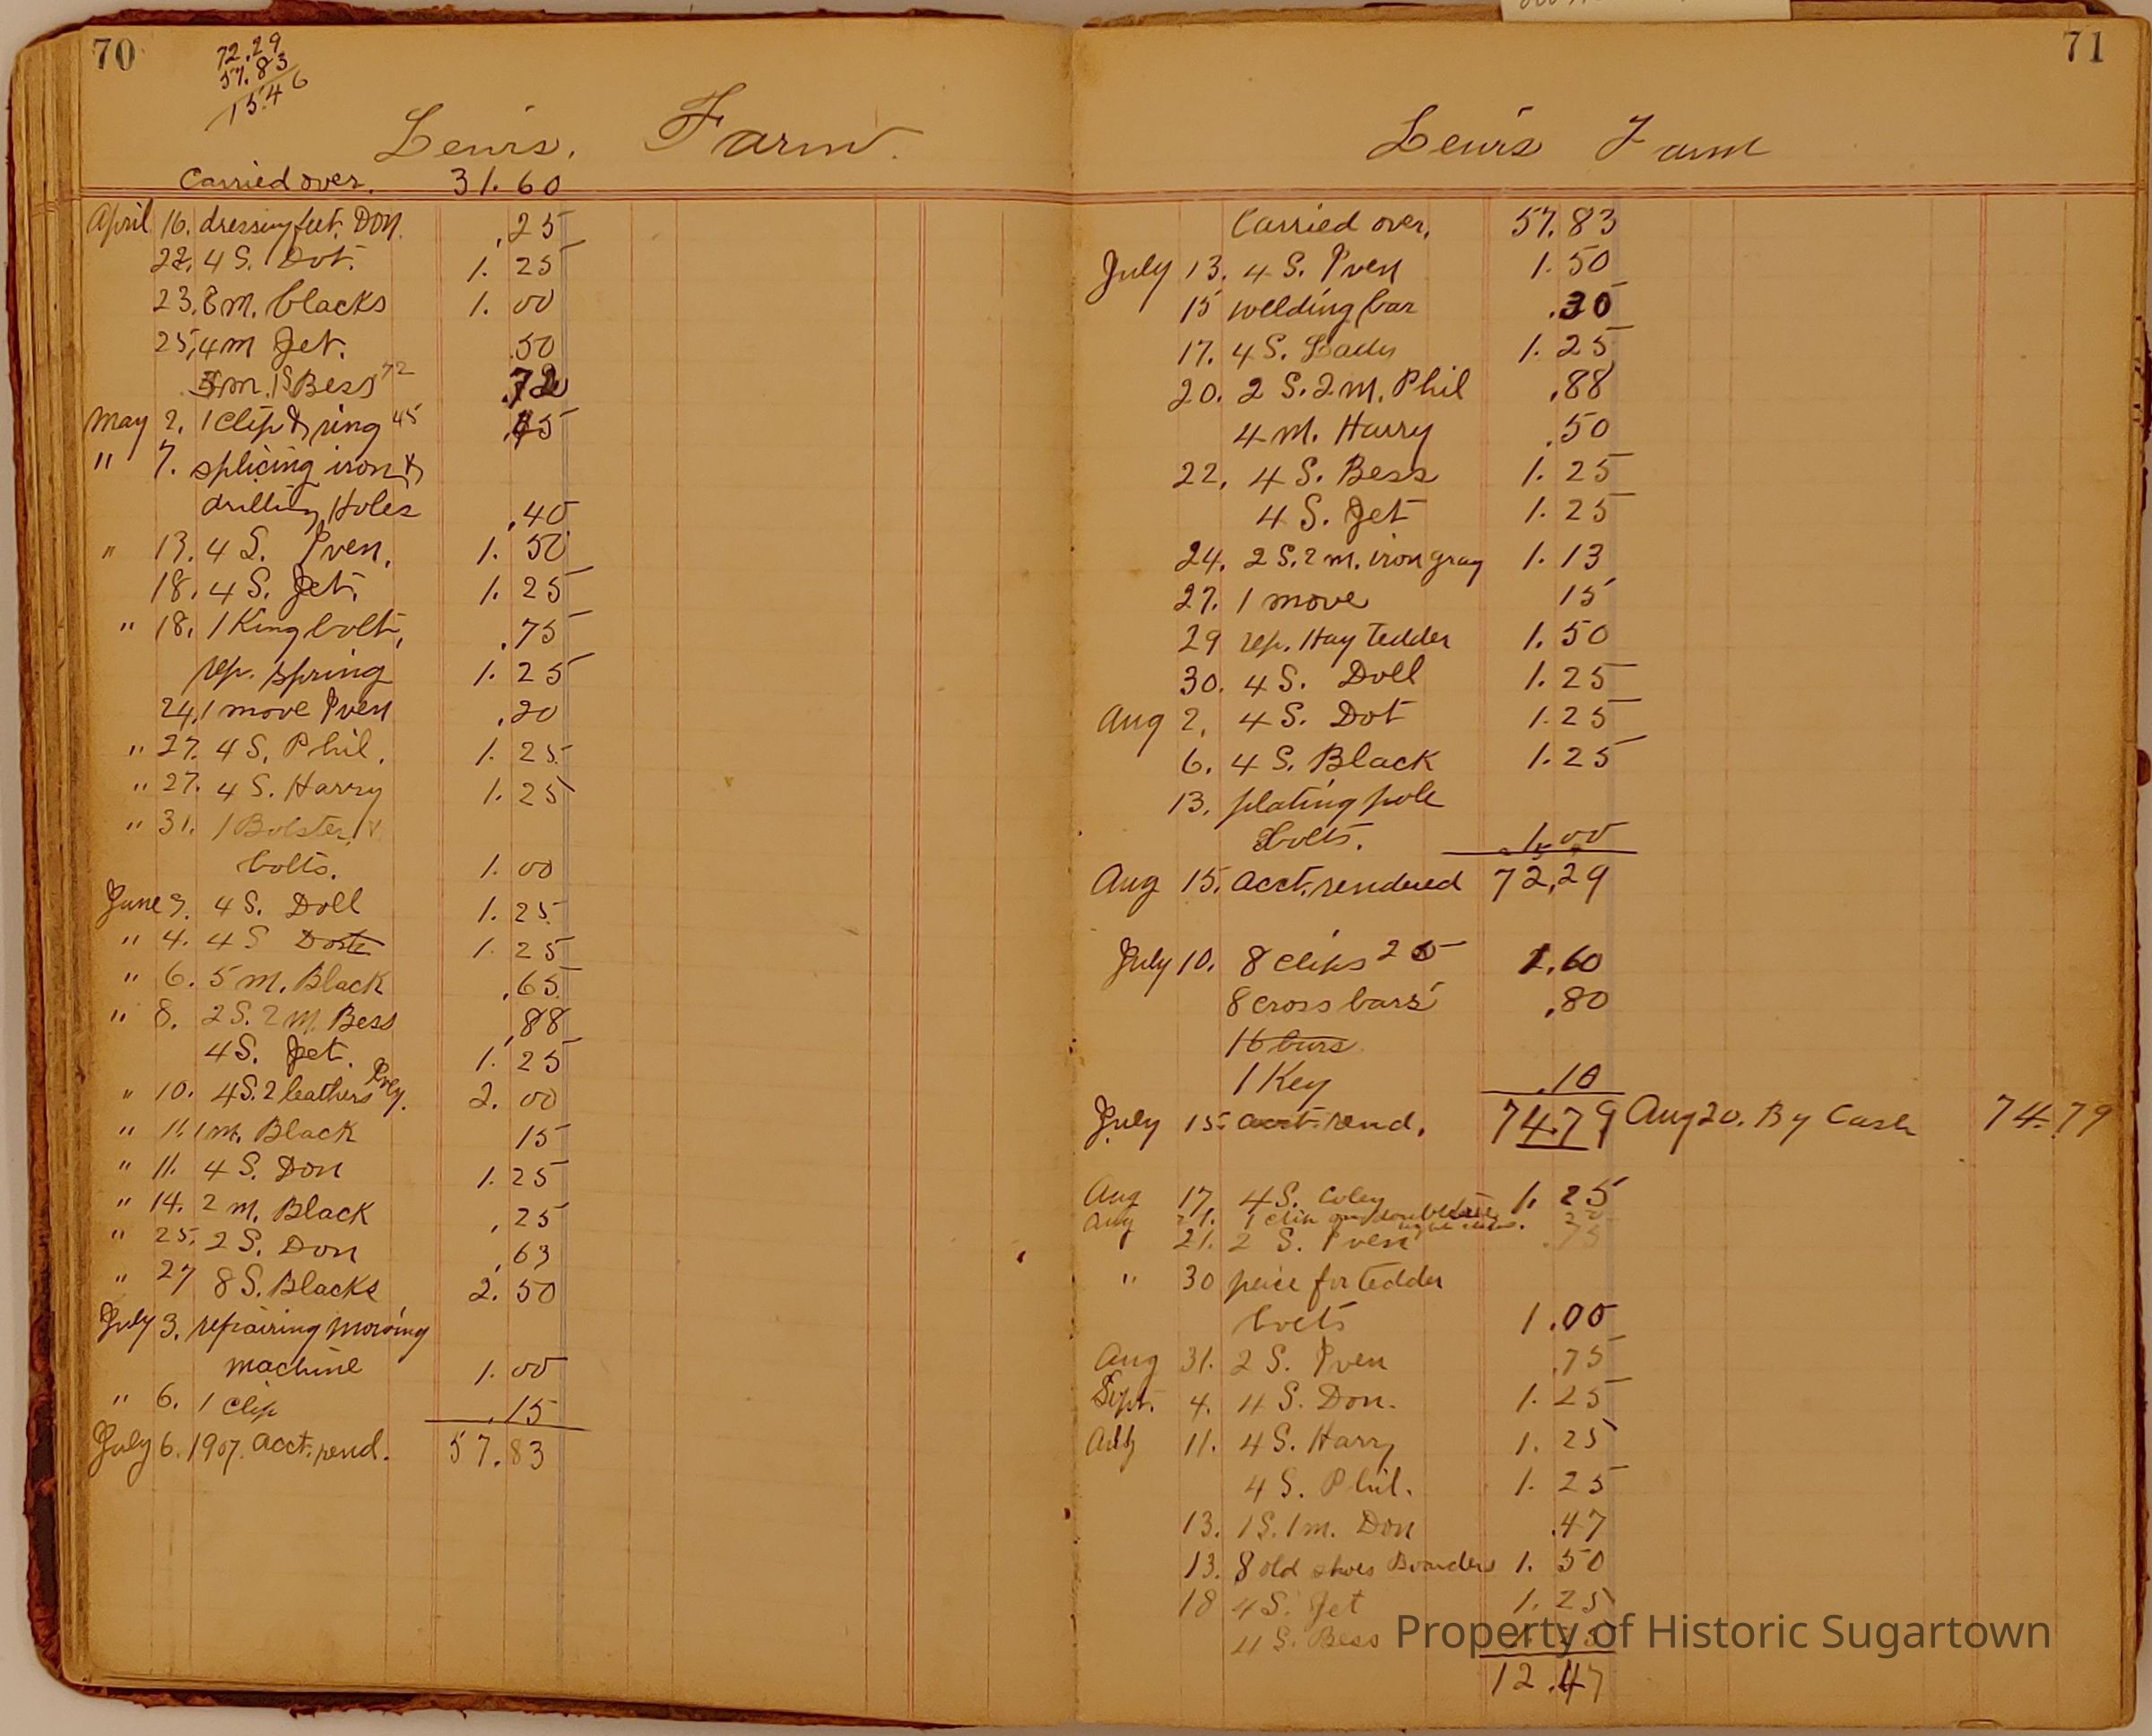 70
72.29
57.83
15.46
Lewis. Farm.
Carried over. 31.60
April 16. dressing feet. Don. .25
22. 4 S. Dot. 1.25
23. 8 m. blacks 1.00
25, 4 m Jet. .50
m. 1 S Bess 72 .72
May 2. 1 Clip & ring 45 .45
" 7. splicing iron &
drilling Holes .40
" 13. 4 S. Pven. 1.50
18. 4 S. Jet. 1.25
" 18. 1 King bolt, .75
rep. spring 1.25
24, 1 move Pven .20
" 27. 4 S. Phil. 1.25
" 27. 4 S. Harry 1.25
" 31. 1 Bolster, &
bolts. 1.00
June 3. 4 S. Doll 1.25
" 4. 4 S 1.25
" 6. 5 m. Black .65
" 8. 2 S. 2 m. Bess .88
4 S. Jet. 1.25
" 10. 4 S. 2 leathers 2.00
" 11. 1 m. Black 15
" 11. 4 S. Don 1.25
" 14. 2 m. Black .25
" 25. 2 S. Don .63
" 27 8 S. Blacks 2.50
July 3. repairing mowing
machine 1.00
" 6. 1 clip .15
July 6. 1907. acct. rend. 57.83
71
Lewis Farm
Carried over, 57.83
July 13. 4 S. Pven 1.50
15 welding bar .30
17. 4 S. Lady 1.25
20. 2 S. 2 m. Phil .88
4 m. Harry .50
22, 4 S. Bess 1.25
4 S. Jet 1.25
24. 2 S. 2 m. iron gray 1.13
27. 1 move 15
29 rep. Hay tedder 1.50
30. 4 S. Doll 1.25
Aug 2, 4 S. Dot 1.25
6. 4 S. Black 1.25
13. plating pole
bolts. 1.00
Aug 15. acct. rendered 72,29
July 10. 8 clips 20 1.60
8 cross bars .80
16 burs
1 Key .10
July 15. acct. rend. 74.79 Aug 20. By Cash 74.79
Aug 17. 4 S. Coley 1.25
Aug 21. 1 clip on doubletree
21. 2 S. Pven .75
" 30 peice for tedder
bolts 1.00
Aug 31. 2 S. Pven .75
Sept. 4. 4 S. Don. 1.25
11. 4 S. Harry 1.25
4 S. Phil. 1.25
13. 1 S. 1 m. Don .47
13. 8 old shoes Boarders 1.50
18 4 S. Jet 1.25
4 S. Bess
12.47
Property of Historic Sugartown